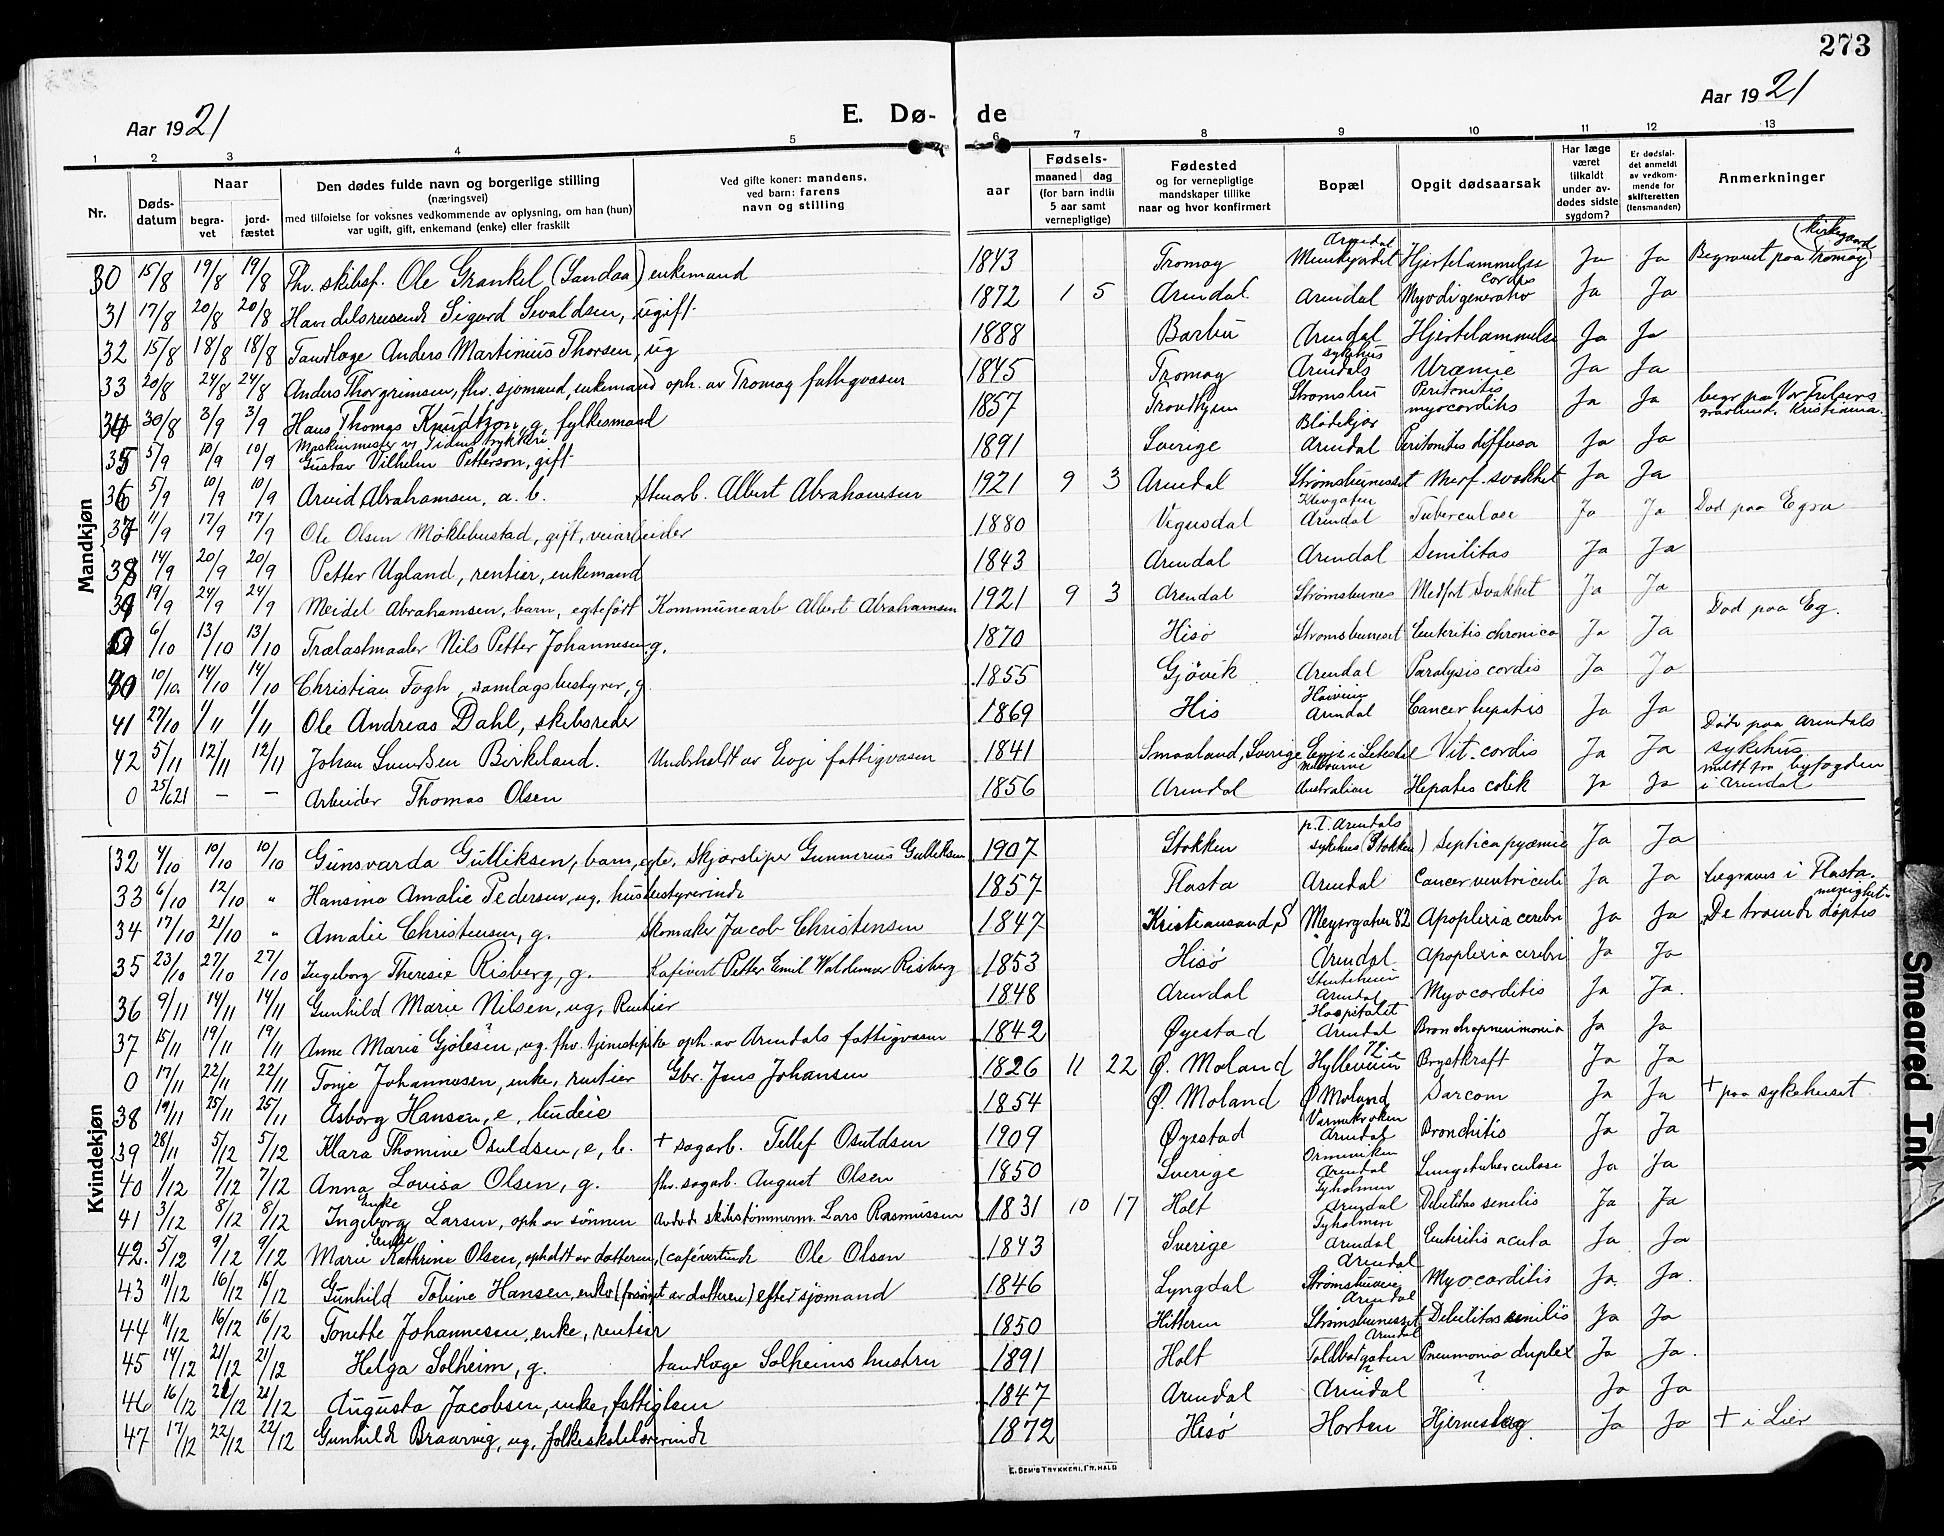 273
Aar 1921
E. Dø- de
Aar 1921
1 2 3 4 5 6 7 8 9 10 11 12 13
Nr. Døds-datum Naar begra-vet jord-fæstet Den dødes fulde navn og borgerlige stilling (næringsvei) med tilføielse for voksnes vedkommende av oplysning, om han (hun) var ugift, gift, enkemand (enke) eller fraskilt Ved gifte koner: mandens, ved barn: farens navn og stilling aar Fødsels- maaned dag (for barn indtil 5 aar samt vernepligtige) Fødested og for vernepligtige mandskaper tillike naar og hvor konfirmert Bopæl Opgit dødsaarsak Har læge været tilkaldt under av-dødes sidste sygdom? Er dødsfal-det anmeldt av vedkom-mende for skifteretten (lensmanden) Anmerkninger
Mandkjøn
30 15/8 19/8 19/8 Fhv. skibsf. Ole Grankel (Sandaa) enkemand 1843 Tromøy Arendal Hjertelammelse Ja Ja Begravet paa Tromøy kirkegaard
31 17/8 20/8 20/8 Handelsreisende Sigurd Sevaldsen, ugift 1872 1 5 Arendal Arendal Myodigeneratio cordis Ja Ja
32 15/8 18/8 18/8 Tandlæge Anders Martinius Thorsen, ug 1888 Barbu Arendal Hjertelammelse Ja Ja
33 20/8 24/8 24/8 Anders Thorgrimsen, fhv. sjømand, enkemand oph. av Tromøy fattigvæsen 1845 Tromøy Arendals sykehus Uræmie Ja Ja
34 30/8 3/9 3/9 Hans Thomas Knudtzon, g. fylkesmand 1857 Trondhjem Strømsbu Peritonitis myocarditis Ja Ja begr. paa Vor Frelsers gravlund, Kristiania.
35 5/9 10/9 10/9 Maskinmester v. Tidens trykkeri Gustav Vilhelm Petterson, gift 1891 Sverige Blødekjær Arendal Peritonitis diffusa Ja Ja
36 5/9 10/9 10/9 Arvid Abrahamsen, a. b. Stenarb. Albert Abrahamsen 1921 9 3 Arendal Strømsbunesset Medf. svakhet Ja Ja
37 11/9 17/9 17/9 Ole Olsen Møklebustad, gift, veiarbeider 1880 Vegusdal Klevgaten Arendal Tuberculose Ja Ja Død paa Egra
38 14/9 20/9 20/9 Petter Ugland, rentier, enkemand 1843 Arendal Arendal Senilitas Ja Ja
39 19/9 24/9 24/9 Meidel Abrahamsen, barn, egtefødt Kommunearb Albert Abrahamsen 1921 9 3 Arendal Strømsbunes Medfødt Svakhet Ja Ja
0 6/10 13/10 13/10 Trælastmaaler Nils Petter Johannesen g. 1870 Hisø Strømsbuneset Enteritis chronica Ja Ja Død paa Eg.
40 10/10 14/10 14/10 Christian Fogh, samlagsbestyrer, g 1855 Gjøvik Arendal Paralysis cordis Ja Ja
41 27/10 1/11 1/11 Ole Andreas Dahl, skibsreder 1869 His Høiveien Arendal Cancer hepatis Ja Ja
42 5/11 12/11 12/11 Johan Svendsen Birkeland. Underholdt av Evje fattigvæsen 1841 Smaaland, Sverige Evje i Setesdal Vit. cordis Ja Ja Døde paa Arendals sykehus
0 25/6 21 – – Arbeider Thomas Olsen 1856 Arendal Melbourne Australien Hepatis colik Ja Ja meldt fra byfogden i Arendal
Kvindekjøn
32 4/10 10/10 10/10 Gunsvarda Gulliksen, barn, egte. Skjærsliper Gunnerius Gulliksen 1907 Stokken p.t. Arendals sykehus (Stokken) Septicapyæmie Ja Ja
33 6/10 12/10 " Hansine Amalie Pedersen, ug. husbestyrerinde 1857 Flosta Arendal Cancer ventriculi Ja Ja begraves i Flosta
34 17/10 21/10 " Amalie Christensen, g. Skomaker Jacob Christensen 1847 Kristiansand S Meyersgaten 82 Apoplexia cerebri Ja Ja De troende døptes menighet
35 23/10 27/10 27/10 Ingeborg Theresie Risberg, g. Kafévert Petter Emil Waldemar Risberg 1853 Hisø Arendal Apoplexia cerebri Ja Ja
36 9/11 14/11 14/11 Gunhild Marie Nilsen, ug, Rentier 1848 Arendal Arendal Myocarditis Ja Ja.
37 15/11 19/11 19/11 Anne Marie Gjølesen, ug. fhv. tjenestepike oph. av Arendals fattigvæsen 1842 Øyestad Hospitalet Arendal Bronchopneumonia Ja Ja
0 17/11 22/11 22/11 Tonje Johannesen, enke, rentier Gbr. Jens Johansen 1826 11 22 Ø. Moland Hylleveien Brystkræft Ja Ja
38 19/11 25/11 25/11 Asborg Hansen, e, budeie 1854 Ø. Moland Ø Moland Sarcom Ja Ja + paa sykehuset
39 28/11 5/12 5/12 Klara Thomine Osuldsen, e, b. + sagarb. Tellef Osuldsen 1909 Øyestad Arendal Bronchitis Ja Ja
40 1/12 7/12 7/12 Anna Lovisa Olsen, g. fhv. sagarb. August Olsen 1850 Sverige Arendal Lungetuberculose Ja Ja
41 3/12 8/12 8/12 Enke Ingeborg Larsen, oph av sønnen skibstømmerm. Lars Rasmussen 1831 10 17 Holt Tyholmen Arendal Debilitas senilis Ja Ja
42. 5/12 9/12 9/12 Enke Marie Kathrine Olsen, opholdt av datteren, (cafévertinde Ole Olsen 1843 Sverige Tyholmen Arendal Enteritis acuta Ja Ja
43 11/12 16/12 16/12 Gunhild Tobine Hansen, enke (forsørget av datteren) efter sjømand 1846 Lyngdal Arendal Myocarditis Ja Ja.
44 11/12 16/12 16/12 Tonette Johannesen, enke, rentier 1850 Hitterø Arendal Strømsbunesset Debilitas senilis Ja Ja
45 14/12 21/12 21/12 Helga Solheim, g. tandlæge Solheims hustru 1891 Holt Arendal Toldbodgaten Pneumonia duplex Ja Ja.
46 16/12 21/12 21/12 Augusta Jacobsen, enke, fattiglem 1847 Arendal Arendal ? Ja Ja
47 17/12 22/12 22/12 Gunhild Braarvig, ug, folkeskolelærerinde 1872 Hisø Horten Hjerneslag Ja Ja + i Lier
E. SEM'S TRYKKERI, FR. HALD
Smeared Ink